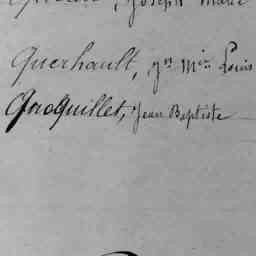 , Joseph Marie
Querhault, Jn Min Louis
QnoQuillet, Jean Baptiste